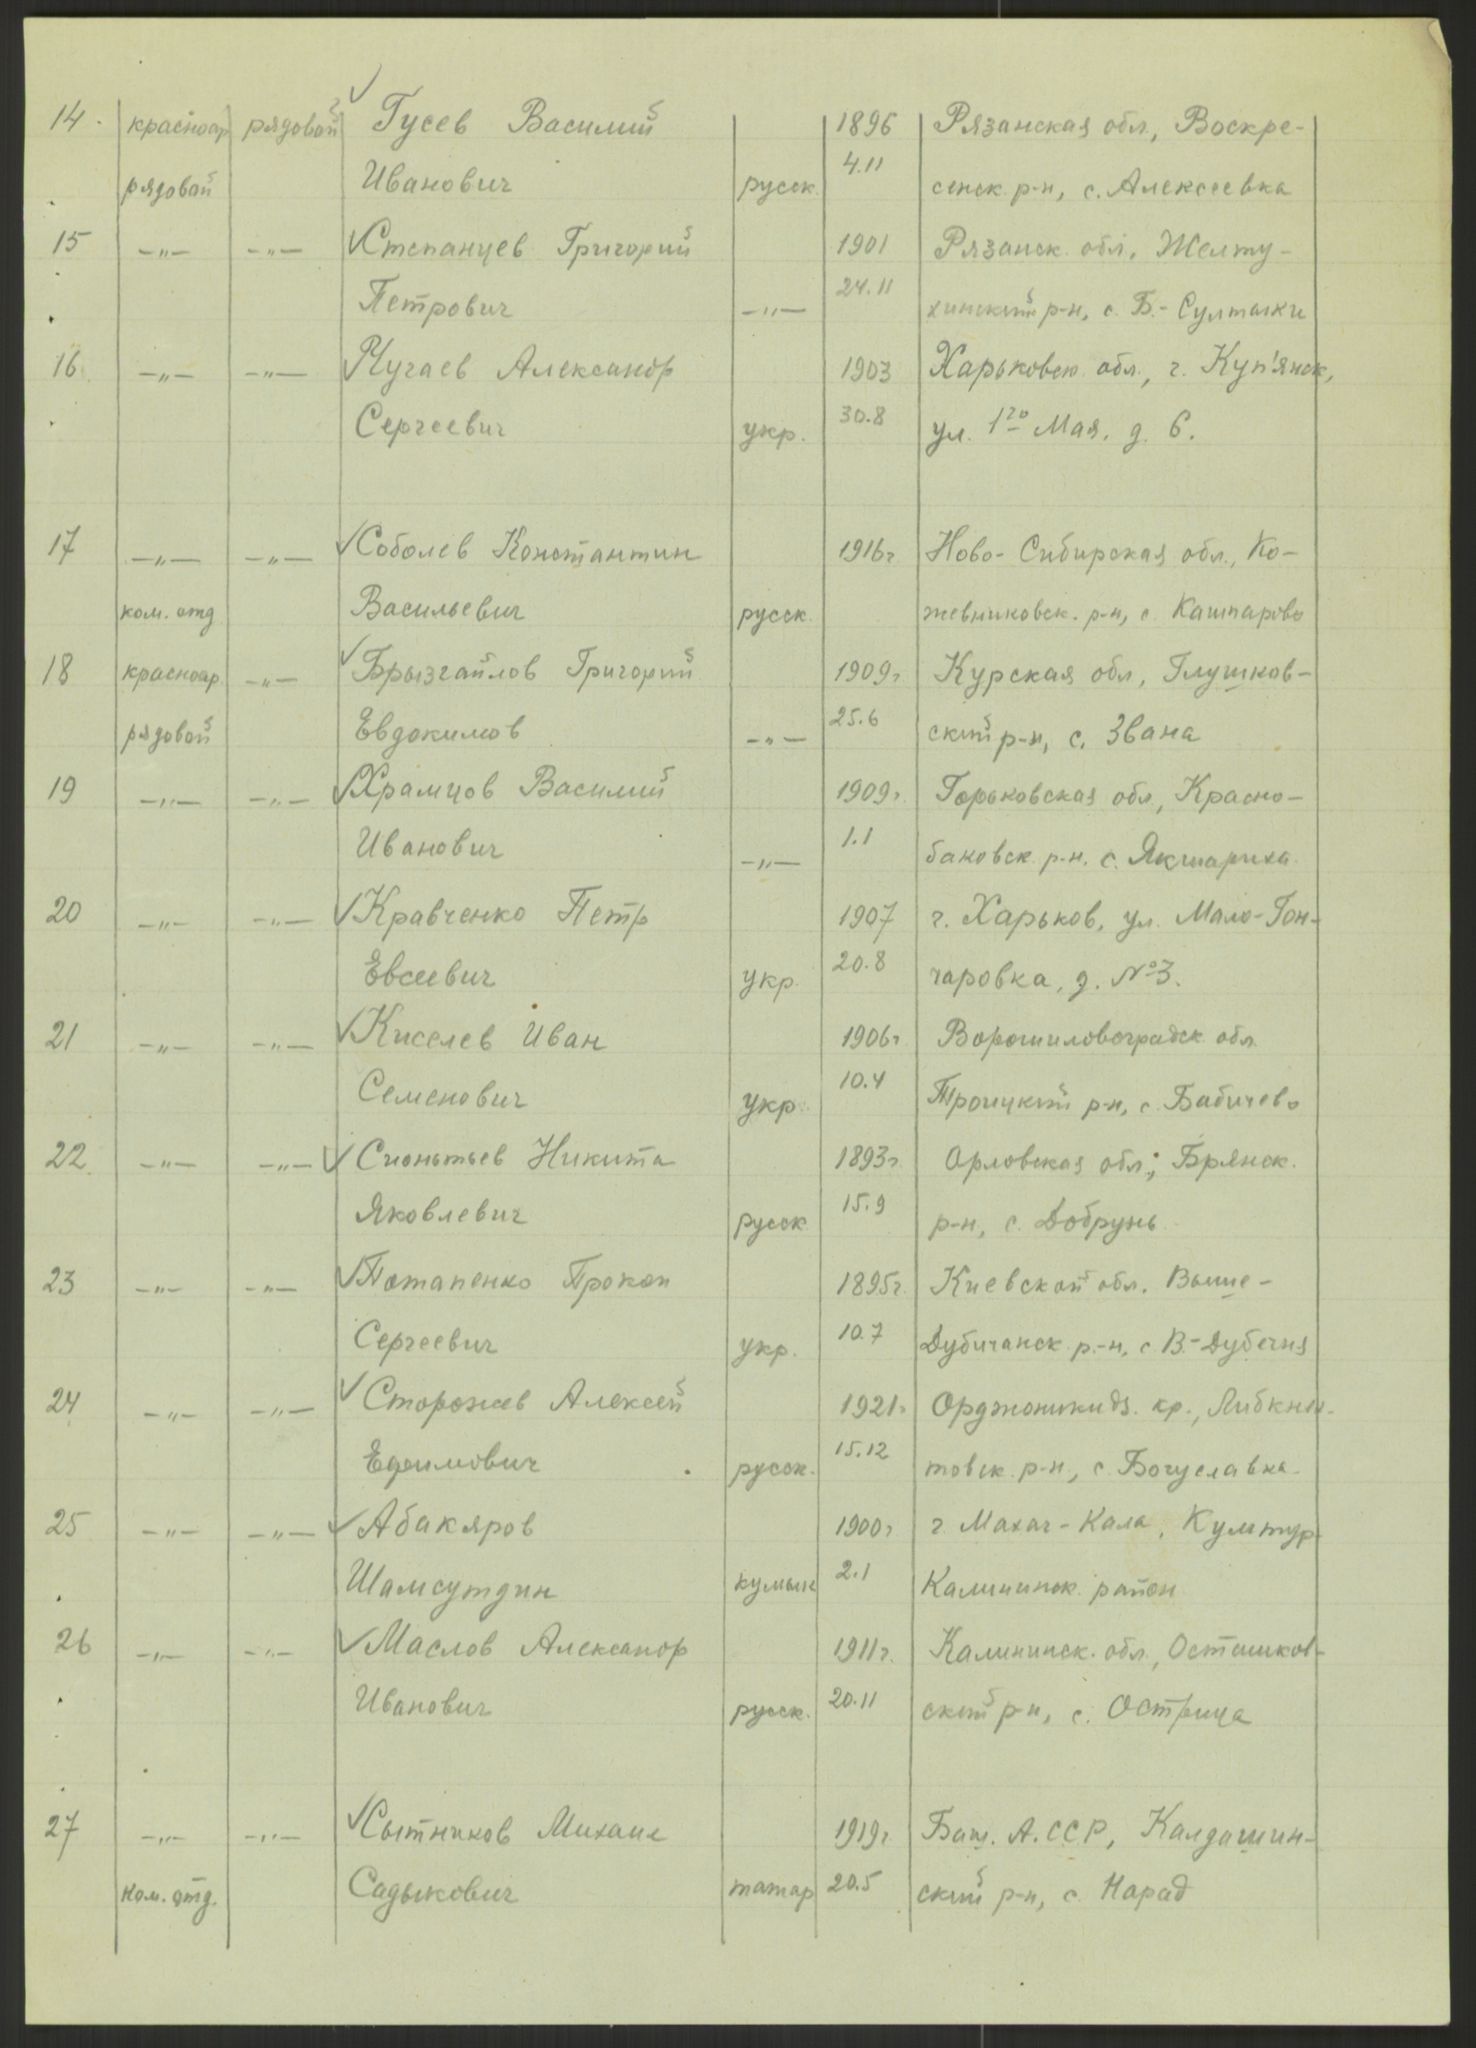 14. красноар рядовой Гусев Василий 1896 Рязанская обл., Воскре-
рядовой Иванович русск. 4.11 сенск. р-н, с. Алексеевка
15 -"- -"- Степанцев Григорий 1901 Рязанск. обл., Желту-
Петрович -"- 24.11 хинский р-н, с. Б.-Султанки
16 -"- -"- Чугаев Александр 1903 Харьковск. обл., г. Куп'янск,
Сергеевич укр. 30.8 ул. 1го Мая, д. 6.
17 -"- -"- Соболев Константин 1916г Ново-Сибирская обл., Ко-
ком. отд Васильевич русск. жевниковск. р-н, с. Кашпарово
18 красноар -"- Брызгайлов Григорий 1909г Курская обл., Глушков-
рядовой Евдокимов -"- 25.6 ский р-н, с. Звана
19 -"- -"- Храмцов Василий 1909г. Горьковская обл., Красно-
Иванович -"- 1.1 баковск. р-н. с. Якшариха
20 -"- -"- Кравченко Петр 1907 г. Харьков, ул. Мало-Гон-
Евсеевич укр. 20.8 чаровка, д. №3.
21 -"- -"- Киселев Иван 1906г Ворошиловоградск. обл.
Семенович укр. 10.4 Троицкий р-н, с. Бабичево
22 -"- -"- Сионтьев Никита 1893г. Орловская обл., Брянск.
Яковлевич русск 15.9 р-н, с. Добрунь
23 -"- -"- Потапенко Прокоп 1895г. Киевской обл. Выше-
Сергеевич укр. 10.7 Дубичанск. р-н, с В.-Дубечня
24 -"- -"- Сторожев Алексей 1921г Орджоникидз. кр., Либкне-
Ефимович русск. 15.12 товск. р-н, с. Богуславка
25 -"- -"- Абакяров 1900г г. Махач-Кала, Культур
Шамсутдин кумык 2.1 Калининск. район
26 -"- -"- Маслов Александр 1911г. Калининск. обл., Осташков-
Иванович русск. 20.11 ский р-н, с. Острица
27 -"- -"- Сытников Михаил 1919г. Баш. А.ССР, Калдашин-
ком. отд. Садыкович татар 20.5 ский р-н, с. Нарад